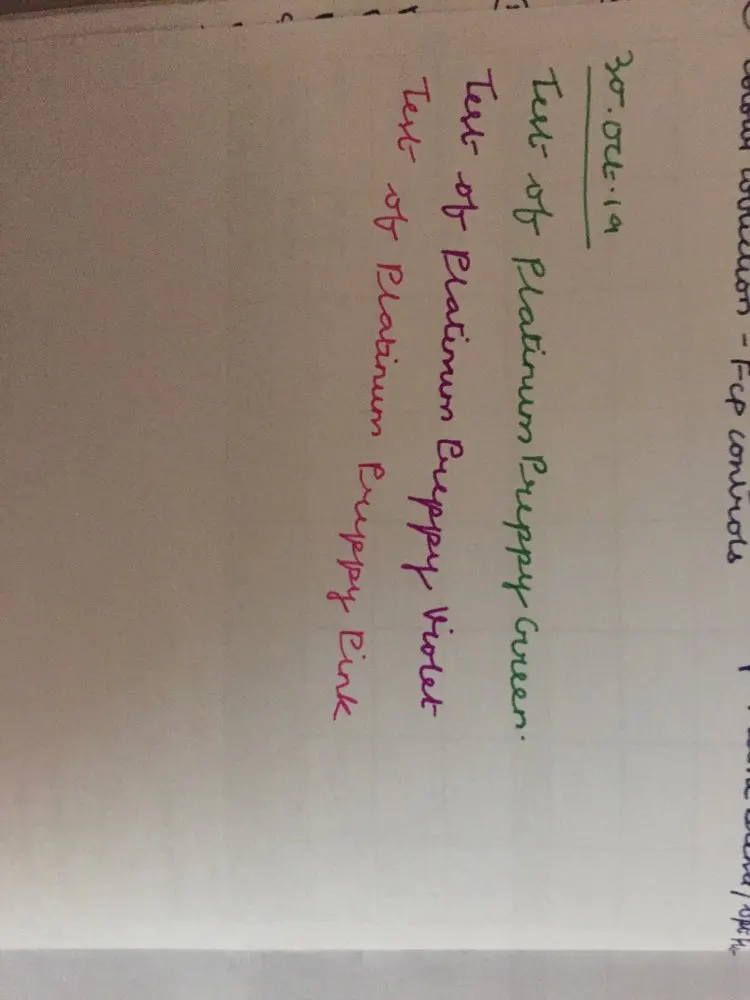 - FCP controls
30.Oct.19
Test of Platinum Preppy Green.
Test of Platinum Preppy Violet
Test of Platinum Preppy Pink